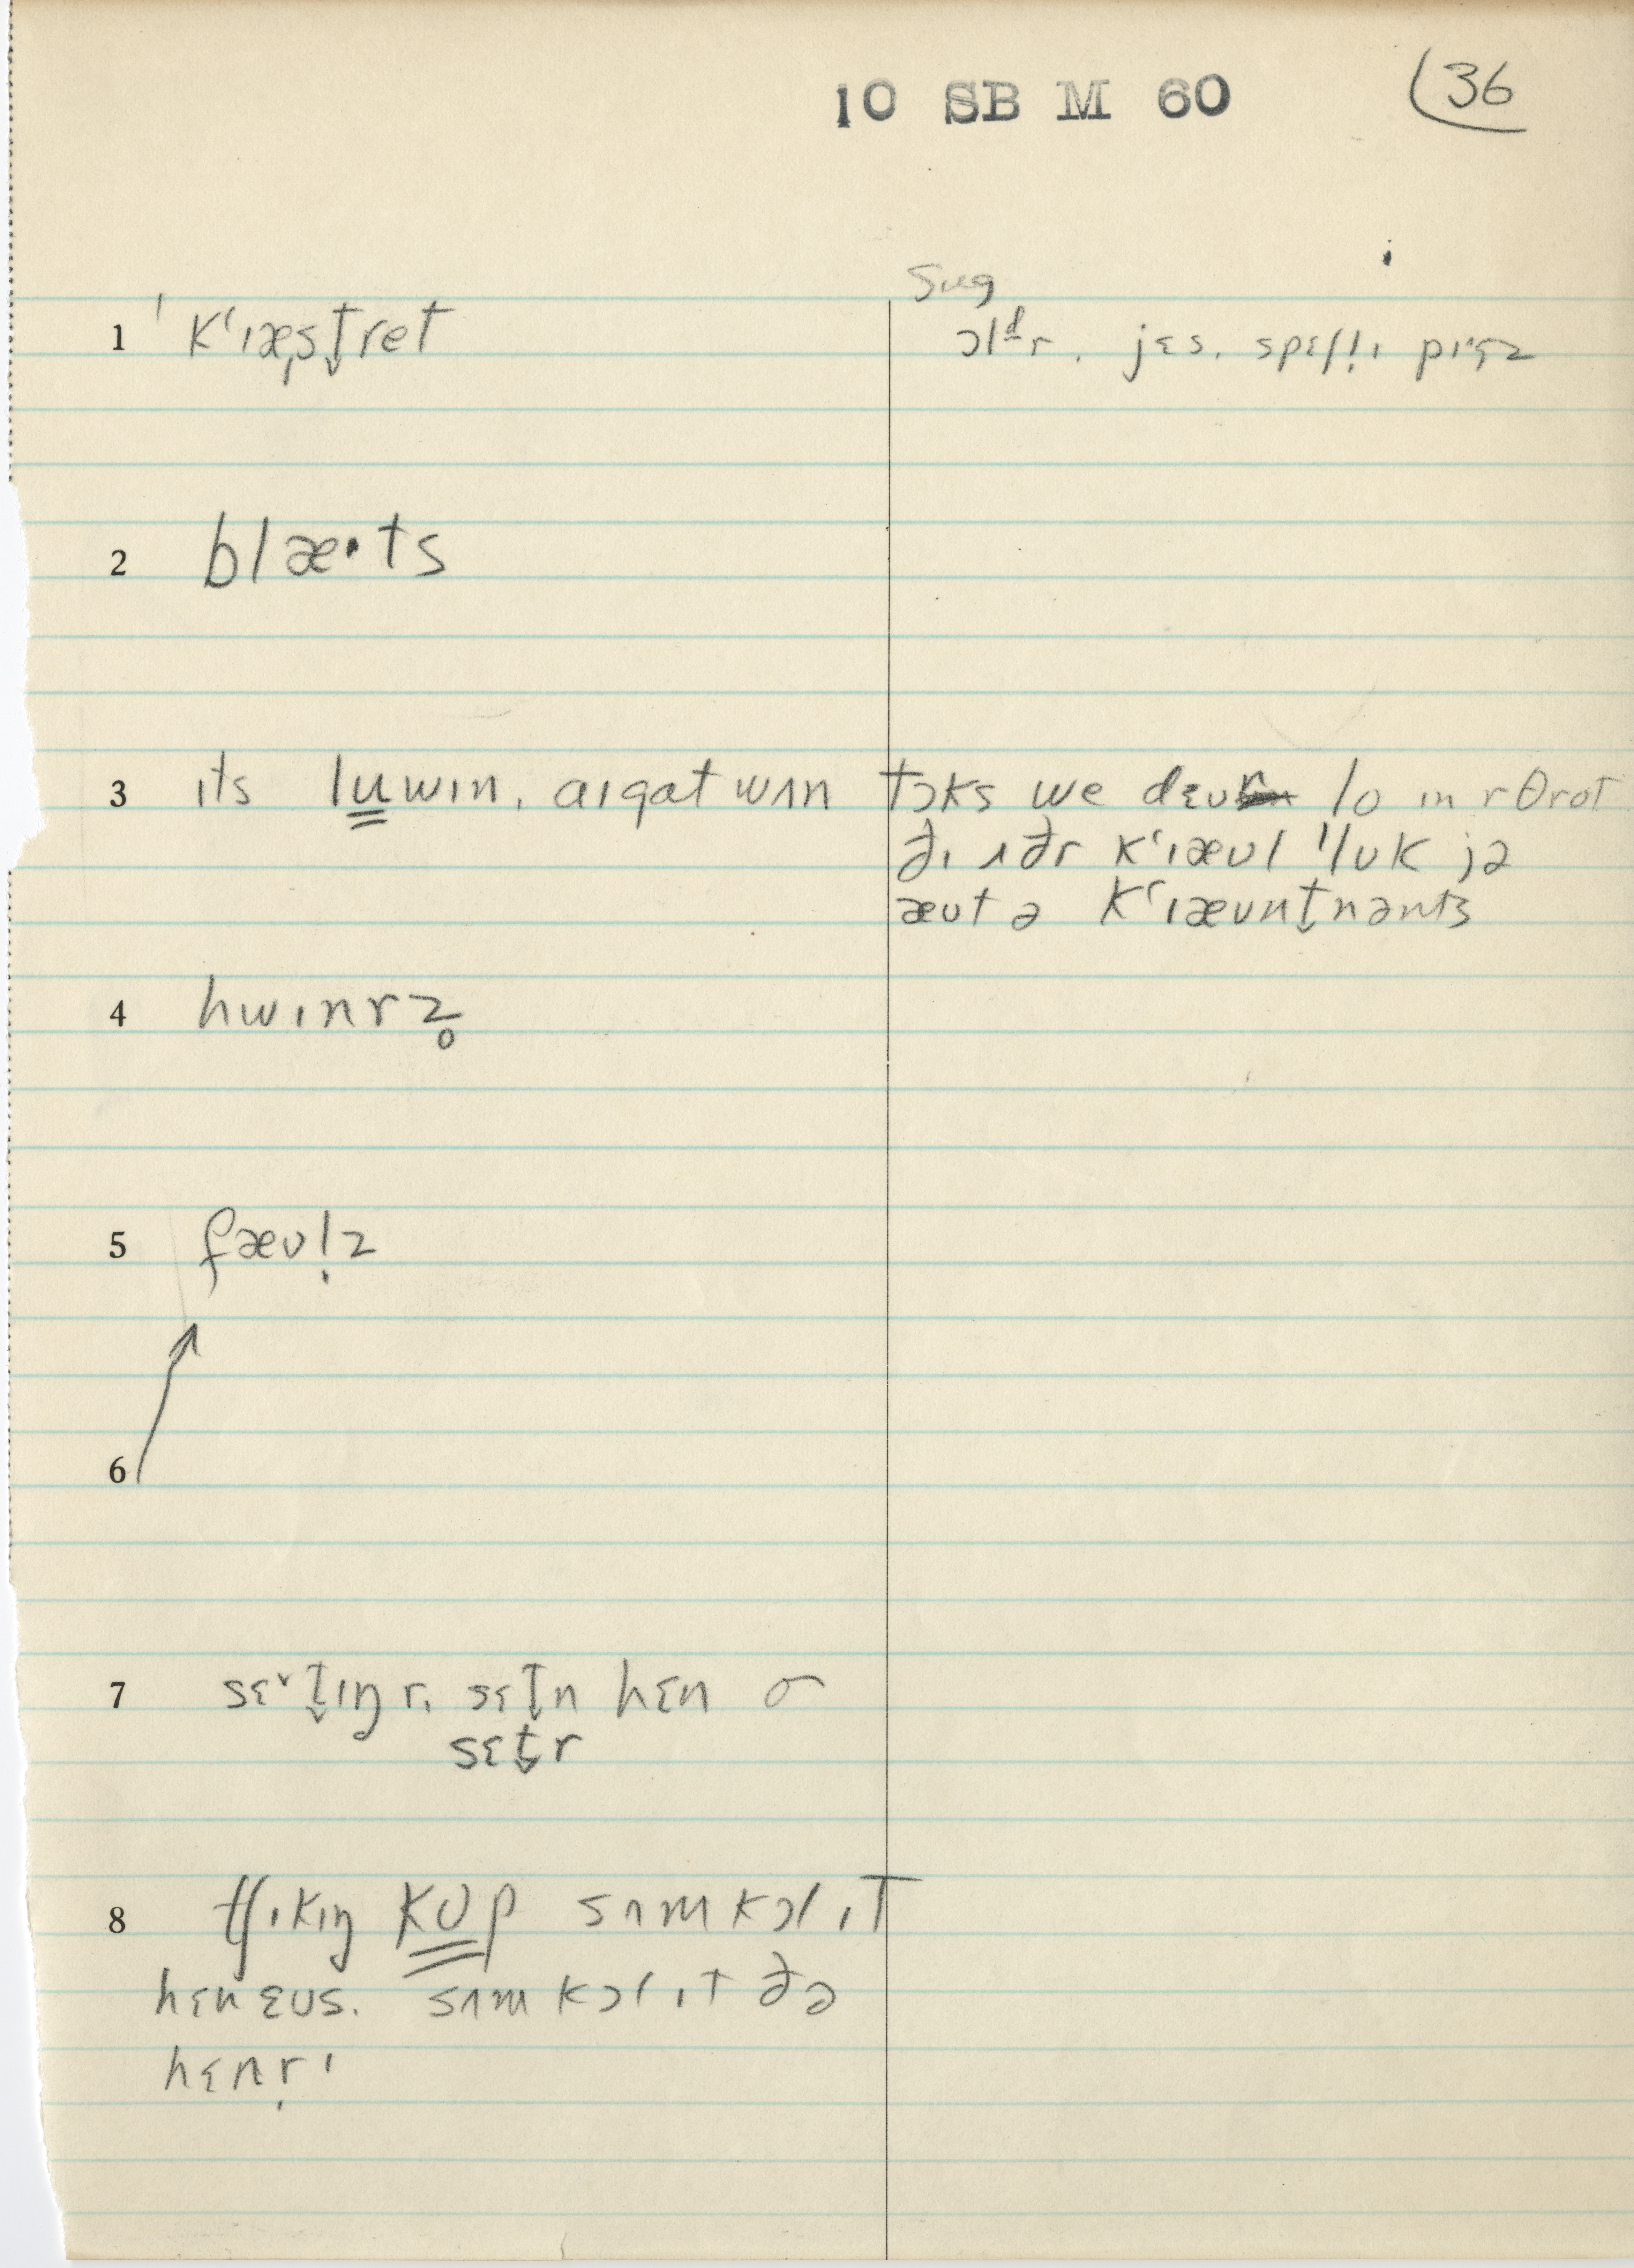 10 SB M 60
36
Sug
1 ˈkʻɪæsṱret
ɔlᵈr. jɛs. spɛʃl̩ɪ pɪgz
2 blæ·ts
3 ɪts luwɪn. aɪgat wʌn tɔks we dɛʊ lo ɪn r θrot
ðɪ ʌðr kʻɪæʊl ˈlʊk jə
æʊt ə kʻɪæʊnt̬nənts
4 hwɪnrz̥
5 fæʊl̩z
6
7 sɛ˅t̬ɪŋ r. sɛt̬n hɛn σ
sɛt̬r
8 tʃɪkɪŋ kʊp sʌm kɔl ɪt
hɛn ɛʊs. sʌm kɔl ɪt ðə
hɛnr̩ɪ